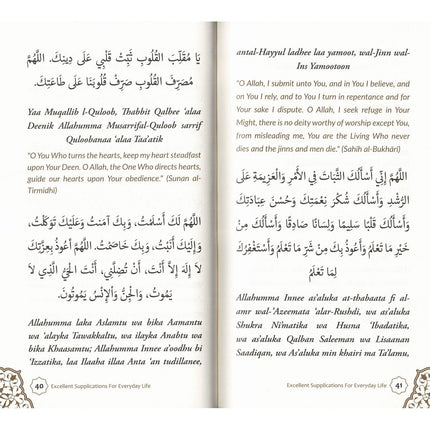 يَا مُقَلِّبَ القُلُوبِ ثَبِّتْ قَلْبِي عَلَى دِينِكَ. اللَّهُمَّ
مُصَرِّفَ الْقُلُوبِ صَرِّفْ قُلُوبَنَا عَلَى طَاعَتِكَ.
Yaa Muqallib l-Quloob, Thabbit Qalbee 'alaa
Deenik Allahumma Musarriful-Quloob sarrif
Quloobanaa 'alaa Taa'atik
"O You Who turns the hearts, keep my heart steadfast
upon Your Deen. O Allah, the One Who directs hearts,
guide our hearts upon Your obedience." (Sunan al-
Tirmidhi)
اللَّهُمَّ لَكَ أَسْلَمْتُ، وَبِكَ آمَنْتُ وَعَلَيْكَ تَوَكَّلْتُ،
وَإِلَيْكَ أَنَبْتُ، وَبِكَ خَاصَمْتُ. اللَّهُمَّ أَعُوذُ بِعِزَّتِكَ
لَا إِلَهَ إِلَّا أَنْتَ، أَنْ تُضِلَّنِي، أَنْتَ الْحَيُّ الَّذِي لَا
يَمُوتُ، وَالْجِنُّ وَالْإِنْسُ يَمُوتُونَ.
Allahumma laka Aslamtu wa bika Aamantu
wa 'alayka Tawakkaltu, wa ilayka Anabtu wa
bika Khaasamtu; Allahumma Innee a'oodhu bi
'Izzatika, laa Ilaaha illaa Anta 'an tudillanee,
40 Excellent Supplications For Everyday Life
antal-Hayyul ladhee laa yamoot, wal-Jinn wal-
Ins Yamootoon
"O Allah, I submit unto You, and in You I believe, and
on You I rely, and to You I turn in repentance and for
Your sake I dispute. O Allah, I seek refuge in Your
Might, there is no deity worthy of worship except You,
from misleading me, You are the Living Who never
dies and the jinns and men die." (Sahih al-Bukhâri)
اللَّهُمَّ إِنِّي أَسْأَلُكَ الثَّبَاتَ فِي الْأَمْرِ وَالْعَزِيمَةَ عَلَى
الرُّشْدِ وَأَسْأَلُكَ شُكْرَ نِعْمَتِكَ وَحُسْنَ عِبَادَتِكَ
وَأَسْأَلُكَ قَلْبًا سَلِيمًا وَلِسَانًا صَادِقًا وَأَسْأَلُكَ مِنْ
خَيْرِ مَا تَعْلَمُ وَأَعُوذُ بِكَ مِنْ شَرِّ مَا تَعْلَمُ وَأَسْتَغْفِرُكَ
لِمَا تَعْلَمُ
Allahumma Innee as'aluka at-thabaata fi al-
amr wal-'Azeemata 'alar-Rushdi, wa as'aluka
Shukra Ni'matika wa Husna 'Ibadatika,
wa as'aluka Qalban Saleeman wa Lisaanan
Saadiqan, wa As'aluka min khairi ma Ta'lamu,
Excellent Supplications For Everyday Life 41